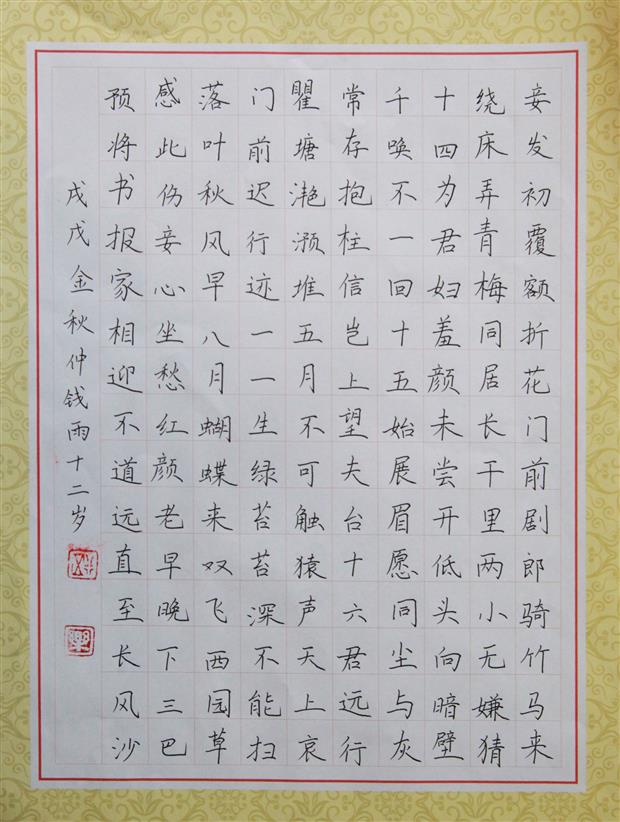 妾发初覆额折花门前剧郎骑竹马来
绕床弄青梅同居长干里两小无嫌猜
十四为君妇羞颜未尝开低头向暗壁
千唤不一回十五始展眉愿同尘与灰
常存抱柱信岂上望夫台十六君远行
瞿塘滟滪堆五月不可触猿声天上哀
门前迟行迹一一生绿苔苔深不能扫
落叶秋风早八月蝴蝶来双飞西园草
感此伤妾心坐愁红颜老早晚下三巴
预将书报家相迎不道远直至长风沙
戌戊金秋仲钱雨十二岁